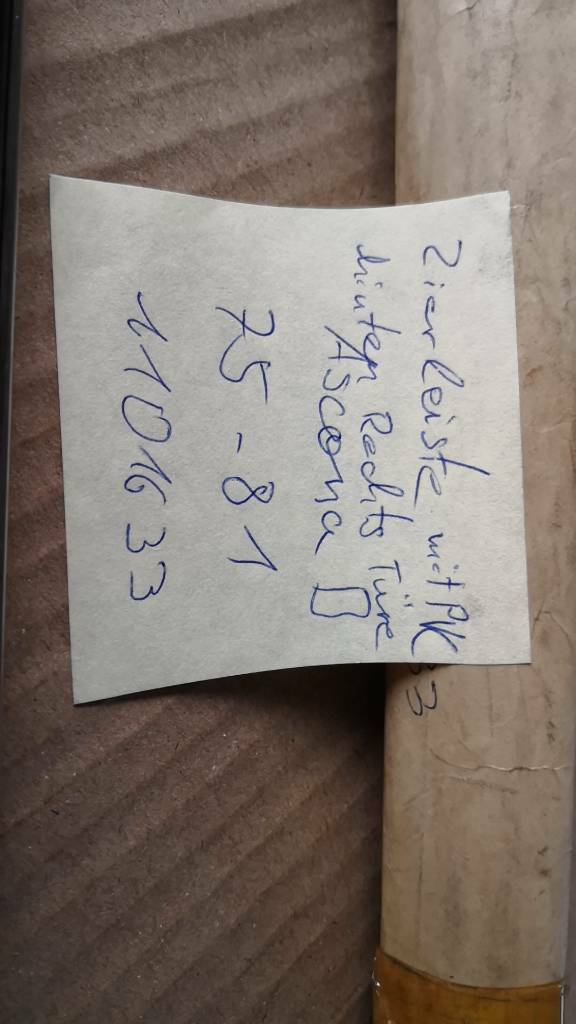 Zierleiste mit PK
hinten Rechts Türe
Ascona D
75-81
1101633
33